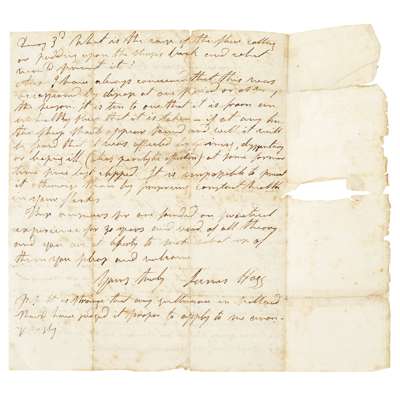 Query 3d What is the cause of the fleece cotting
or pudding upon the sheeps back and what
would prevent it?
Ans. I have always conceived that this was
occasioned by disease at one period or other, of
the season. It is ten to one that it is from an
unhealthy sheep that it is taken if at any time
the sheep should appear sound and well it will
be found that it was affected
or leaping ill (paralytic affection) at some former
time since last clipped. It is impossible to prevent
it otherwise than by preserving constant health
in your flocks
These answers sir are founded on practical
experience for 30 years and void of all theory
and you are at liberty to make what use of
them you please and welcome
Yours truly James Hogg
P.S. It is strange that any gentleman in
should have judged it proper to apply to me anon-
ymously